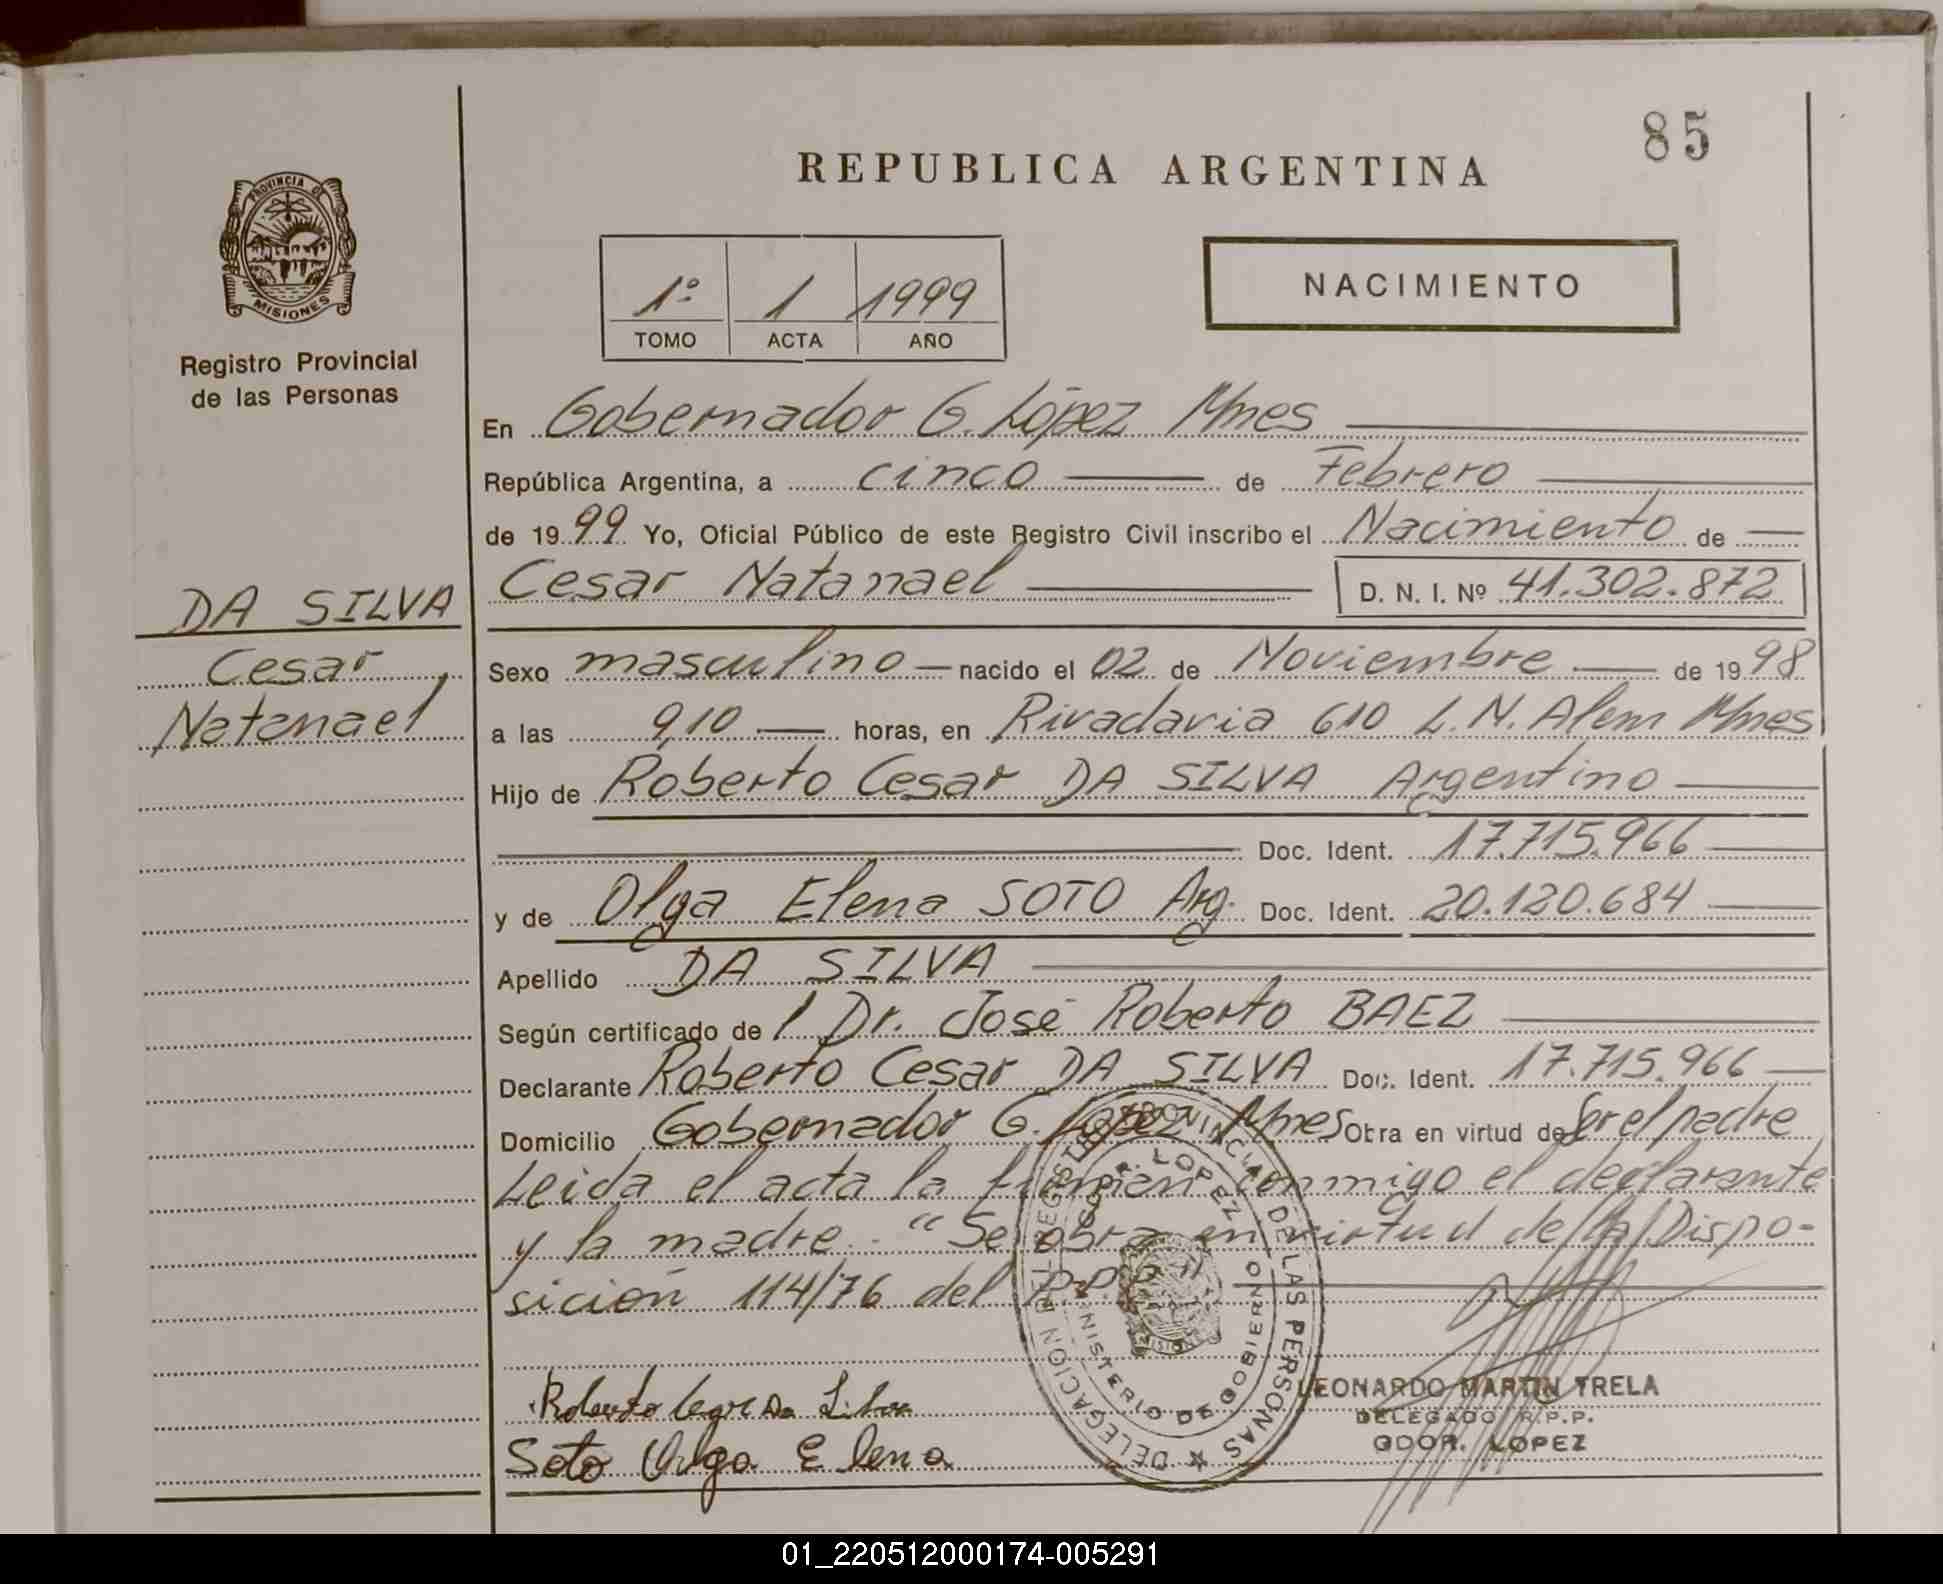 85
REPUBLICA ARGENTINA
PROVINCIA DE
MISIONES
Registro Provincial
de las Personas
1º 1 1999
TOMO ACTA AÑO
NACIMIENTO
En Gobernador G. López Mnes
República Argentina, a cinco de Febrero
de 1999 Yo, Oficial Público de este Registro Civil inscribo el Nacimiento de
DA SILVA
Cesar
Natanael
Cesar Natanael D. N. I. Nº 41.302.872
Sexo masculino nacido el 02 de Noviembre de 1998
a las 9,10 horas, en Rivadavia 610 L. N. Alem Mnes
Hijo de Roberto Cesar DA SILVA Argentino
Doc. Ident. 17.715.966
y de Olga Elena SOTO Arg. Doc. Ident. 20.120.684
Apellido DA SILVA
Según certificado de 1 Dr. José Roberto BAEZ
Declarante Roberto Cesar DA SILVA Doc. Ident. 17.715.966
Domicilio Gobernador G. López Mnes Obra en virtud de Ser el padre
Leida el acta la firman conmigo el declarante
y la madre. "Se obra en virtud de la Dispo-
sición 114/76 del R.P.P."
DELEGACION DEL REGISTRO PROVINCIAL DE LAS PERSONAS
GDOR. LOPEZ
MINISTERIO DE GOBIERNO
Roberto Cesar Da Silva
Soto Olga Elena
LEONARDO MARTIN TRELA
DELEGADO R.P.P.
GDOR. LOPEZ
01_220512000174-005291